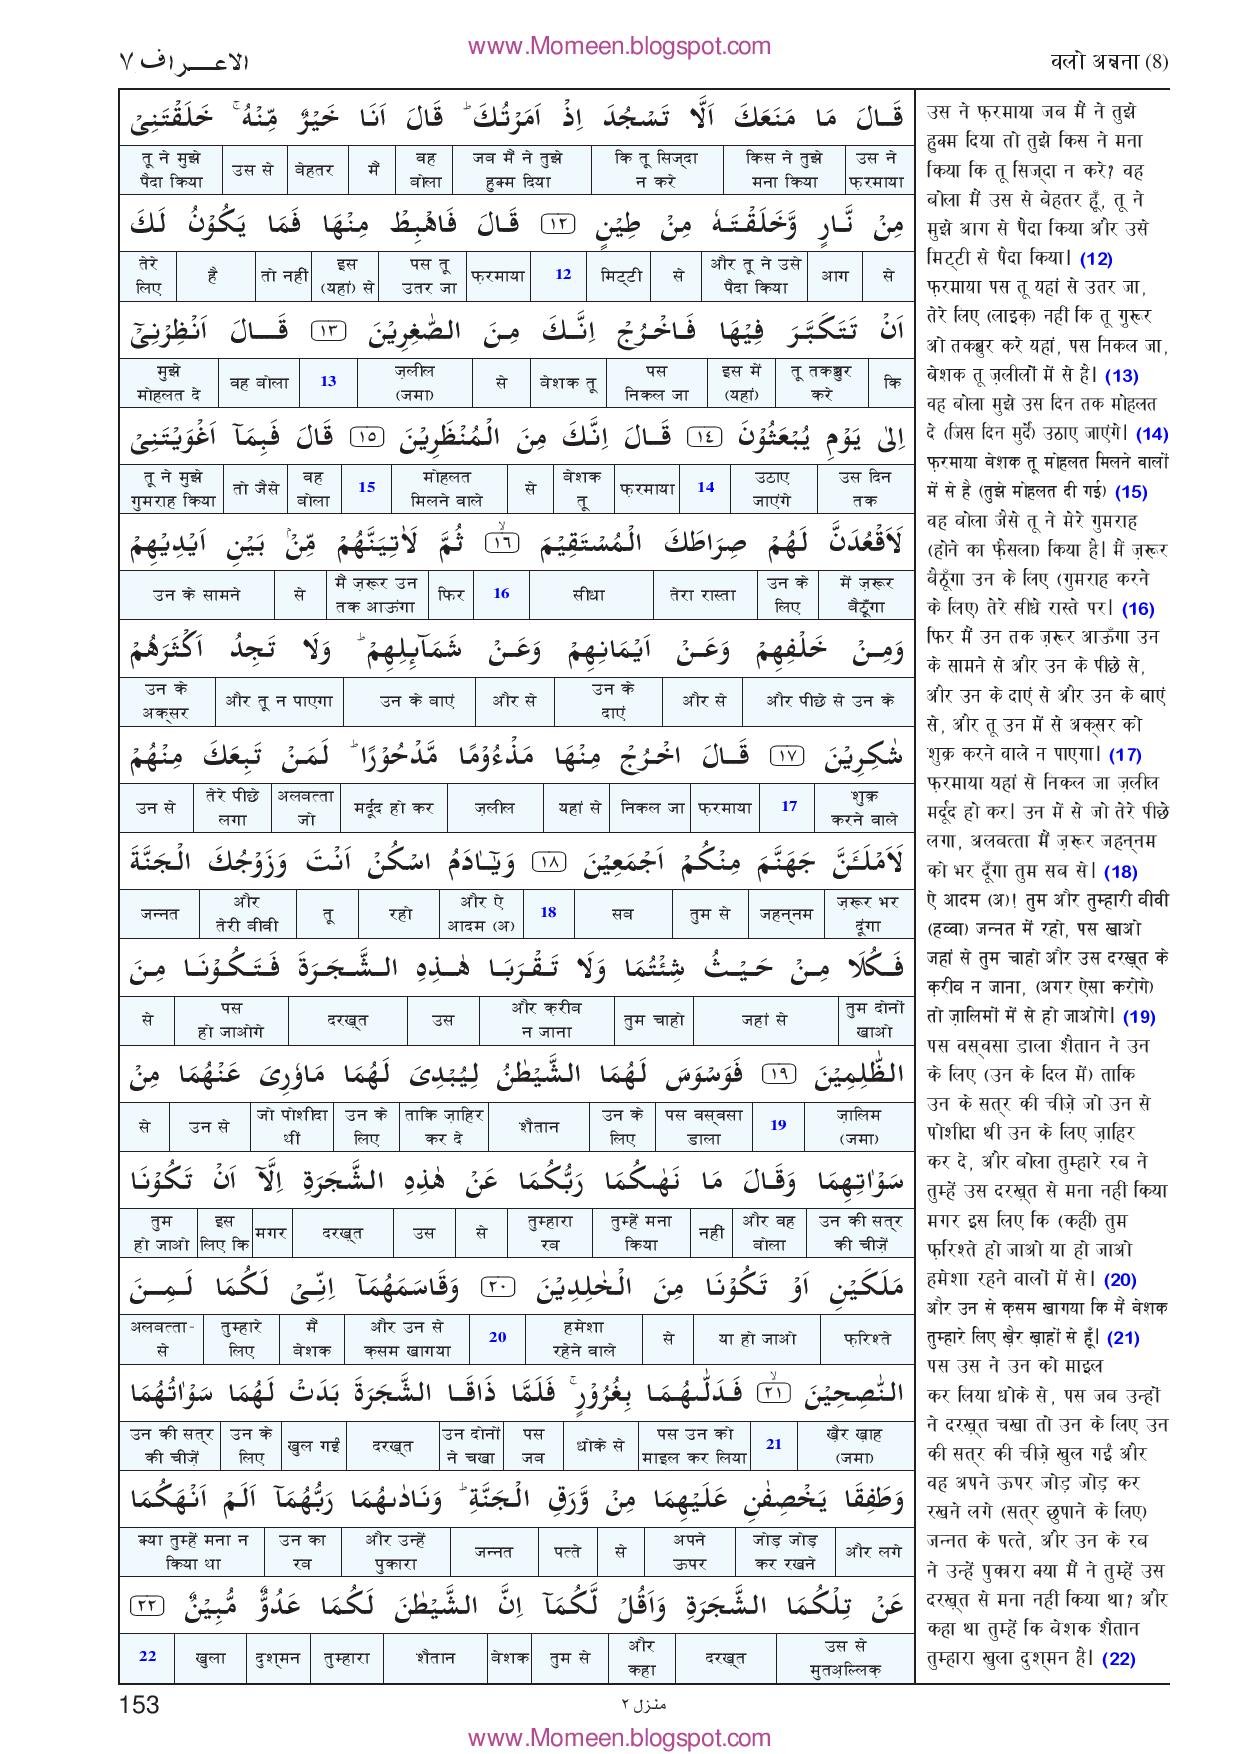 www.Momeen.blogspot.com
الاعراف ٧
वलो अन्नना (8)
قَالَ مَا مَنَعَكَ اَلَّا تَسْجُدَ اِذْ اَمَرْتُكَ ؕ قَالَ اَنَا خَيْرٌ مِّنْهُ ۚ خَلَقْتَنِىْ
उस ने फ़रमाया | किस ने तुझे मना किया | कि तू सिज्दा न करे | जब मैं ने तुझे हुक्म दिया | वह बोला | मैं | बेहतर | उस से | तू ने मुझे पैदा किया
مِنْ نَّارٍ وَّخَلَقْتَهٗ مِنْ طِيْنٍ ١٢ قَالَ فَاهْبِطْ مِنْهَا فَمَا يَكُوْنُ لَكَ
से | आग | और तू ने उसे पैदा किया | से | मिट्टी | 12 | फ़रमाया | पस तू उतर जा | इस (यहां) से | तो नहीं | है | तेरे लिए
اَنْ تَتَكَبَّرَ فِيْهَا فَاخْرُجْ اِنَّكَ مِنَ الصّٰغِرِيْنَ ١٣ قَالَ اَنْظِرْنِىْٓ
कि | तू तकब्बुर करे | इस में (यहां) | पस निकल जा | बेशक तू | से | ज़लील (जमा) | 13 | वह बोला | मुझे मोहलत दे
اِلٰى يَوْمِ يُبْعَثُوْنَ ١٤ قَالَ اِنَّكَ مِنَ الْمُنْظَرِيْنَ ١٥ قَالَ فَبِمَآ اَغْوَيْتَنِىْ
उस दिन तक | उठाए जाएंगे | 14 | फ़रमाया | बेशक तू | से | मोहलत मिलने वाले | 15 | वह बोला | तो जैसे | तू ने मुझे गुमराह किया
لَاَقْعُدَنَّ لَهُمْ صِرَاطَكَ الْمُسْتَقِيْمَ ۙ ١٦ ثُمَّ لَاٰتِيَنَّهُمْ مِّنْۢ بَيْنِ اَيْدِيْهِمْ
में ज़रूर बैठूँगा | उन के लिए | तेरा रास्ता | सीधा | 16 | फिर | मैं ज़रूर उन तक आऊंगा | से | उन के सामने
وَمِنْ خَلْفِهِمْ وَعَنْ اَيْمَانِهِمْ وَعَنْ شَمَآئِلِهِمْ ؕ وَلَا تَجِدُ اَكْثَرَهُمْ
और पीछे से उन के | और से | उन के दाएं | और से | उन के बाएं | और तू न पाएगा | उन के अक्सर
شٰكِرِيْنَ ١٧ قَالَ اخْرُجْ مِنْهَا مَذْءُوْمًا مَّدْحُوْرًا ؕ لَمَنْ تَبِعَكَ مِنْهُمْ
शुक्र करने वाले | 17 | फ़रमाया | निकल जा | यहां से | ज़लील | मर्दूद हो कर | अलबत्ता जो | तेरे पीछे लगा | उन से
لَاَمْلَـَٔنَّ جَهَنَّمَ مِنْكُمْ اَجْمَعِيْنَ ١٨ وَيٰٓاٰدَمُ اسْكُنْ اَنْتَ وَزَوْجُكَ الْجَنَّةَ
ज़रूर भर दूंगा | जहन्नम | तुम से | सब | 18 | और ऐ आदम (अ) | रहो | तू | और तेरी बीवी | जन्नत
فَكُلَا مِنْ حَيْثُ شِئْتُمَا وَلَا تَقْرَبَا هٰذِهِ الشَّجَرَةَ فَتَكُوْنَا مِنَ
तुम दोनों खाओ | जहां से | तुम चाहो | और क़रीब न जाना | उस | दरख़्त | पस हो जाओगे | से
الظّٰلِمِيْنَ ١٩ فَوَسْوَسَ لَهُمَا الشَّيْطٰنُ لِيُبْدِىَ لَهُمَا مَاوٗرِىَ عَنْهُمَا مِنْ
ज़ालिम (जमा) | 19 | पस वस्वसा डाला | उन के लिए | शैतान | ताकि ज़ाहिर कर दे | उन के लिए | जो पोशीदा थीं | उन से | से
سَوْاٰتِهِمَا وَقَالَ مَا نَهٰىكُمَا رَبُّكُمَا عَنْ هٰذِهِ الشَّجَرَةِ اِلَّآ اَنْ تَكُوْنَا
उन की सत्र की चीज़ें | और वह बोला | नहीं | तुम्हें मना किया | तुम्हारा रब | से | उस | दरख़्त | मगर | इस लिए कि | तुम हो जाओ
مَلَكَيْنِ اَوْ تَكُوْنَا مِنَ الْخٰلِدِيْنَ ٢٠ وَقَاسَمَهُمَآ اِنِّىْ لَكُمَا لَمِنَ
फ़रिश्ते | या हो जाओ | से | हमेशा रहेने वाले | 20 | और उन से क़सम खागया | मैं बेशक | तुम्हारे लिए | अलबत्ता-से
النّٰصِحِيْنَ ۙ ٢١ فَدَلّٰىهُمَا بِغُرُوْرٍ ۚ فَلَمَّا ذَاقَا الشَّجَرَةَ بَدَتْ لَهُمَا سَوْاٰتُهُمَا
ख़ैर ख़ाह (जमा) | 21 | पस उन को माइल कर लिया | धोके से | पस जब | उन दोनों ने चखा | दरख़्त | खुल गईं | उन के लिए | उन की सत्र की चीज़ें
وَطَفِقَا يَخْصِفٰنِ عَلَيْهِمَا مِنْ وَّرَقِ الْجَنَّةِ ؕ وَنَادٰىهُمَا رَبُّهُمَآ اَلَمْ اَنْهَكُمَا
और लगे | जोड़ जोड़ कर रखने | अपने ऊपर | से | पत्ते | जन्नत | और उन्हें पुकारा | उन का रब | क्या तुम्हें मना न किया था
عَنْ تِلْكُمَا الشَّجَرَةِ وَاَقُلْ لَّكُمَآ اِنَّ الشَّيْطٰنَ لَكُمَا عَدُوٌّ مُّبِيْنٌ ٢٢
उस से मुतअल्लिक़ | दरख़्त | और कहा | तुम से | बेशक | शैतान | तुम्हारा | दुश्मन | खुला | 22
उस ने फ़रमाया जब मैं ने तुझे
हुक्म दिया तो तुझे किस ने मना
किया कि तू सिज्दा न करे? वह
बोला मैं उस से बेहतर हूँ, तू ने
मुझे आग से पैदा किया और उसे
मिट्टी से पैदा किया। (12)
फ़रमाया पस तू यहां से उतर जा,
तेरे लिए (लाइक़) नहीं कि तू गुरूर
ओ तकब्बुर करे यहां, पस निकल जा,
बेशक तू ज़लीलों में से है। (13)
वह बोला मुझे उस दिन तक मोहलत
दे (जिस दिन मुर्दे) उठाए जाएंगे। (14)
फ़रमाया बेशक तू मोहलत मिलने वालों
में से है (तुझे मोहलत दी गई) (15)
वह बोला जैसे तू ने मेरे गुमराह
(होने का फ़ैसला) किया है। मैं ज़रूर
बैठूँगा उन के लिए (गुमराह करने
के लिए) तेरे सीधे रास्ते पर। (16)
फिर मैं उन तक ज़रूर आऊँगा उन
के सामने से और उन के पीछे से,
और उन के दाएं से और उन के बाएं
से, और तू उन में से अक्सर को
शुक्र करने वाले न पाएगा। (17)
फ़रमाया यहां से निकल जा ज़लील
मर्दूद हो कर। उन में से जो तेरे पीछे
लगा, अलबत्ता मैं ज़रूर जहन्नम
को भर दूँगा तुम सब से। (18)
ऐ आदम (अ)! तुम और तुम्हारी बीवी
(हव्वा) जन्नत में रहो, पस खाओ
जहां से तुम चाहो और उस दरख़्त के
क़रीब न जाना, (अगर ऐसा करोगे)
तो ज़ालिमों में से हो जाओगे। (19)
पस वस्वसा डाला शैतान ने उन
के लिए (उन के दिल में) ताकि
उन के सत्र की चीज़ें जो उन से
पोशीदा थीं उन के लिए ज़ाहिर
कर दे, और बोला तुम्हारे रब ने
तुम्हें उस दरख़्त से मना नहीं किया
मगर इस लिए कि (कहीं) तुम
फ़रिश्ते हो जाओ या हो जाओ
हमेशा रहने वालों में से। (20)
और उन से क़सम खागया कि मैं बेशक
तुम्हारे लिए ख़ैर ख़ाहों से हूँ। (21)
पस उस ने उन को माइल
कर लिया धोके से, पस जब उन्हों
ने दरख़्त चखा तो उन के लिए उन
की सत्र की चीज़ें खुल गईं और
वह अपने ऊपर जोड़ जोड़ कर
रखने लगे (सत्र छुपाने के लिए)
जन्नत के पत्ते, और उन के रब
ने उन्हें पुकारा क्या मैं ने तुम्हें उस
दरख़्त से मना नहीं किया था? और
कहा था तुम्हें कि बेशक शैतान
तुम्हारा खुला दुश्मन है। (22)
153
منزل ٢
www.Momeen.blogspot.com